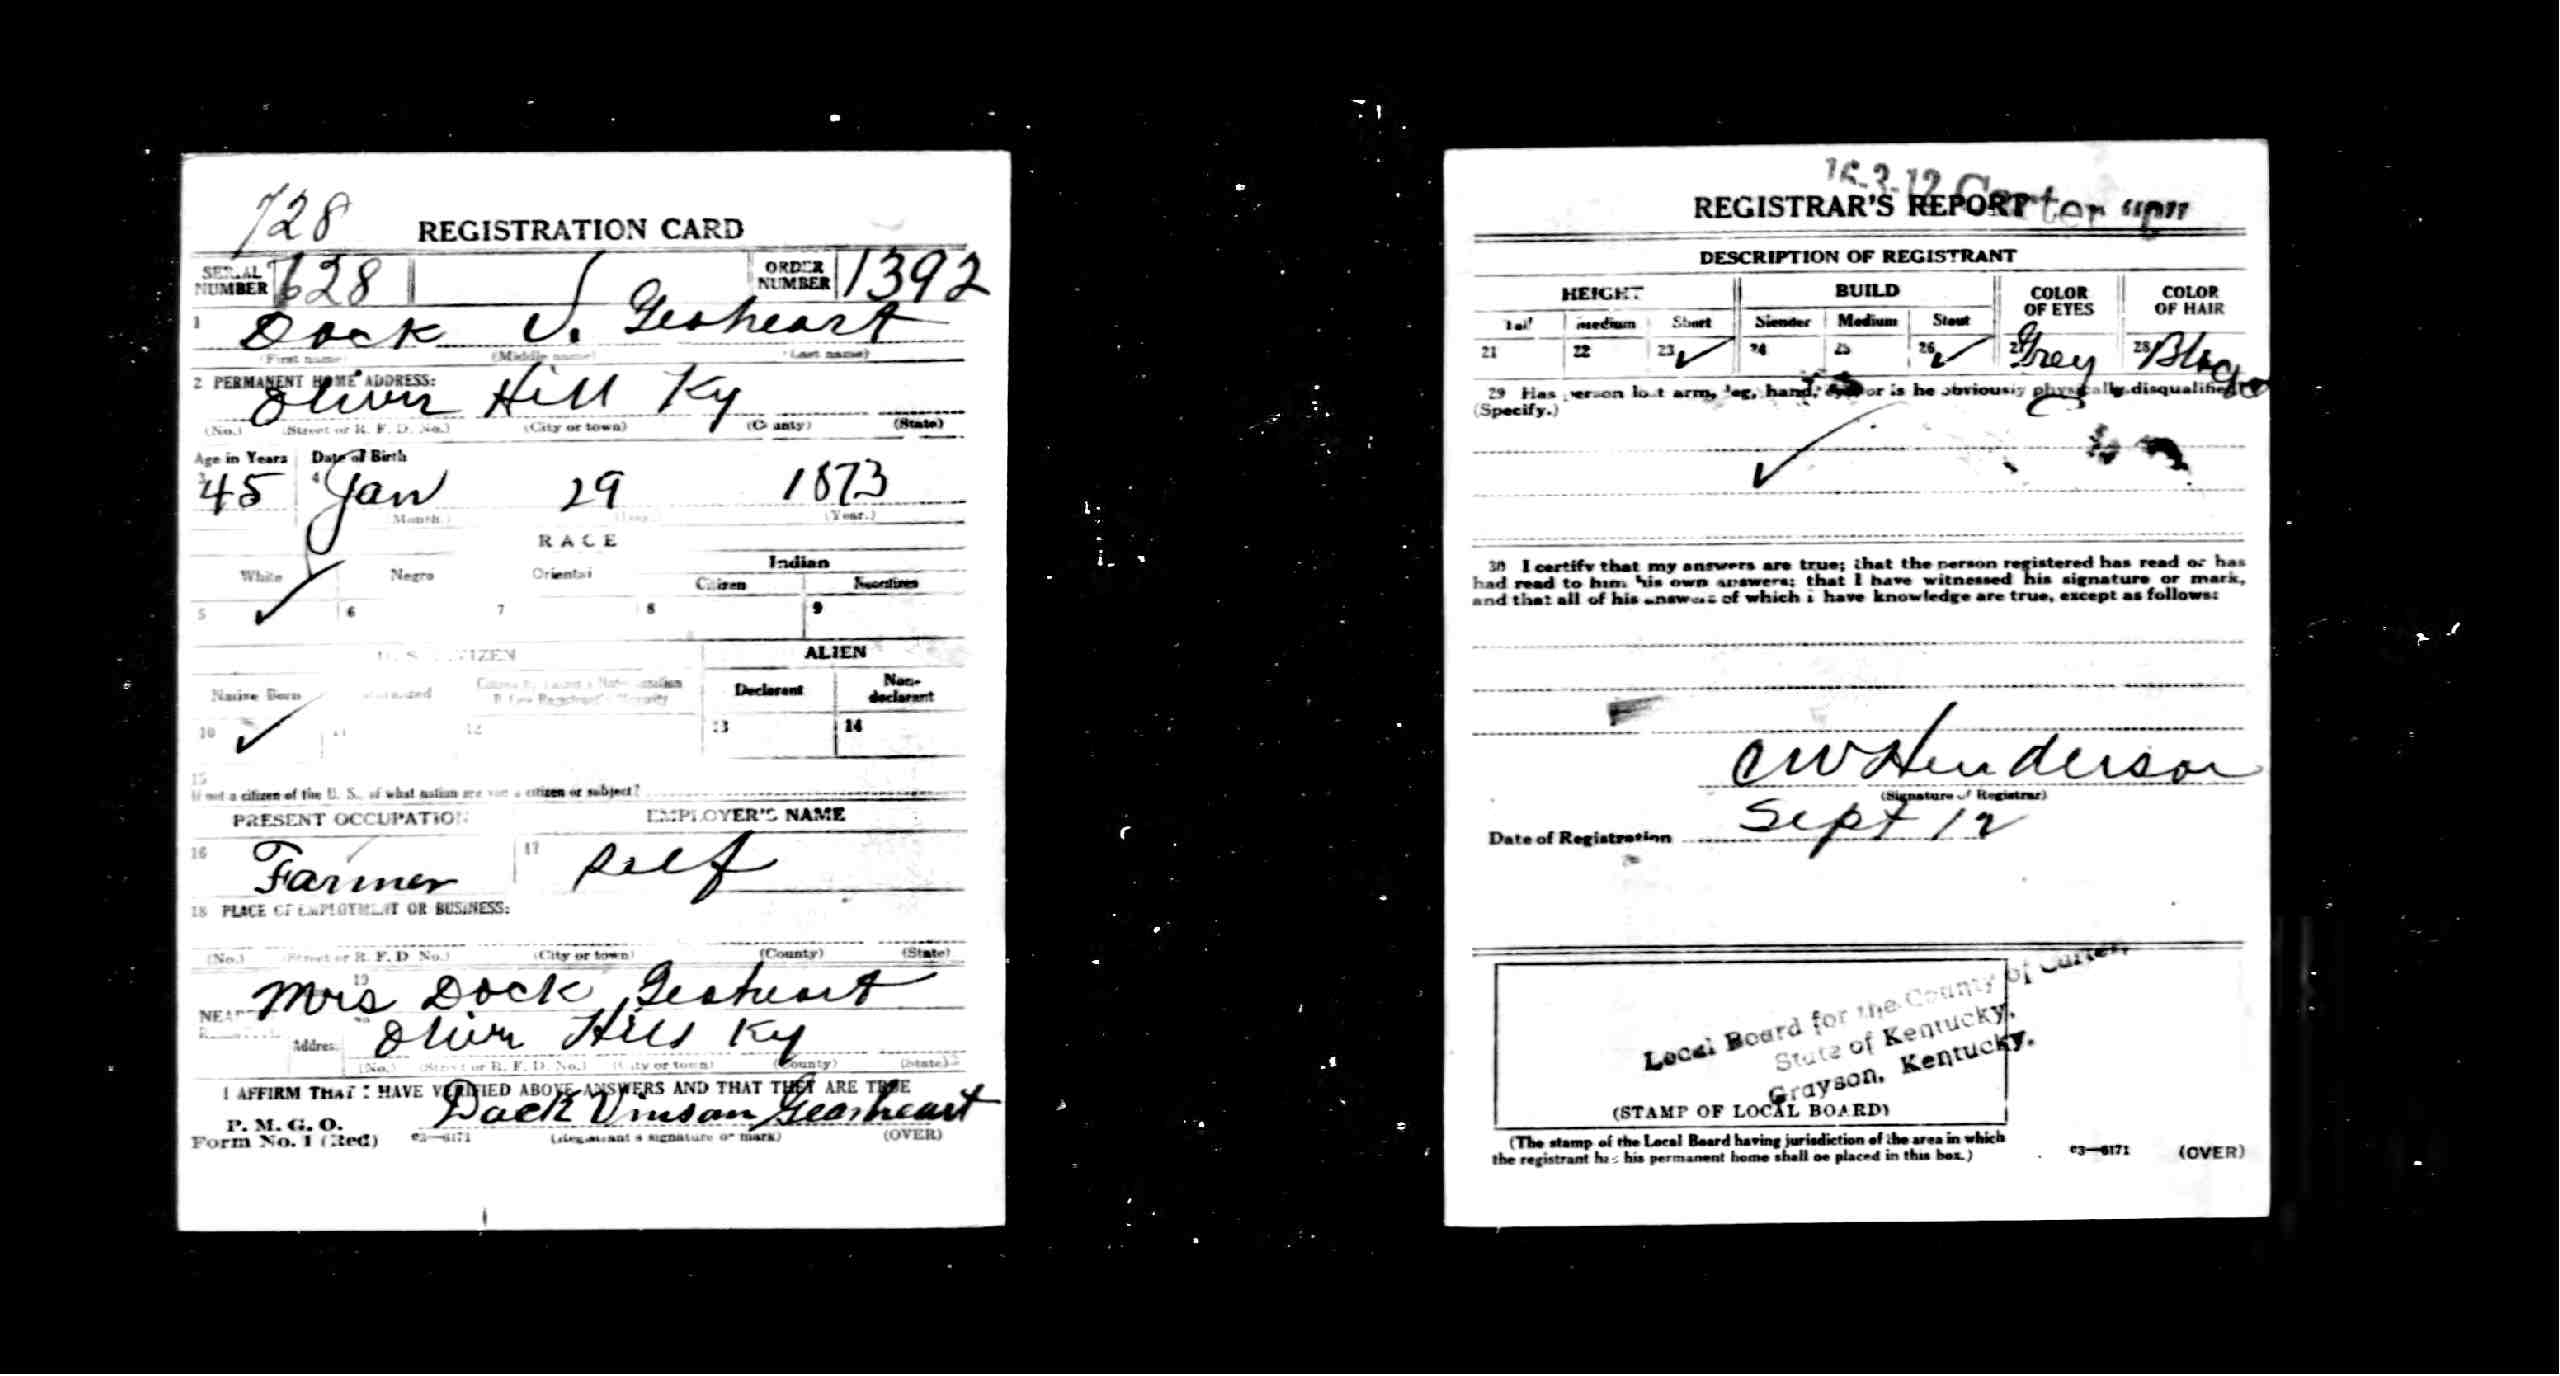 728
REGISTRATION CARD
SERIAL NUMBER 628 ORDER NUMBER 1392
1 Dock V. Gearheart
(First name) (Middle name) (Last name)
2 PERMANENT HOME ADDRESS:
Olive Hill Ky
(No.) (Street or R. F. D. No.) (City or town) (County) (State)
Age in Years Date of Birth
3 45 4 Jan 29 1873
(Month.) (Day.) (Year.)
RACE
White Negro Oriental Indian
Citizen Noncitizen
5 ✓ 6 7 8 9
U. S. CITIZEN ALIEN
Native Born Naturalized Citizen by Father's Naturalization Before Registrant's Majority Declarant Non-declarant
10 ✓ 11 12 13 14
15
If not a citizen of the U. S., of what nation are you a citizen or subject?
PRESENT OCCUPATION EMPLOYER'S NAME
16 Farmer 17 self
18 PLACE OF EMPLOYMENT OR BUSINESS:
(No.) (Street or R. F. D. No.) (City or town) (County) (State)
19
Mrs Dock Gearheart
Address Olive Hill Ky
(No.) (Street or R. F. D. No.) (City or town) (County) (State)
I AFFIRM THAT I HAVE VERIFIED ABOVE ANSWERS AND THAT THEY ARE TRUE
P. M. G. O.
Form No. 1 (Red) 03—6171 Dock Vinson Gearheart
(Registrant's signature or mark) (OVER)
16-3-12 Carter "C"
REGISTRAR'S REPORT
DESCRIPTION OF REGISTRANT
HEIGHT BUILD COLOR OF EYES COLOR OF HAIR
Tall Medium Short Slender Medium Stout
21 22 23 ✓ 24 25 26 ✓ 27 Grey 28 Black
29 Has person lost arm, leg, hand, eye, or is he obviously physically disqualified?
(Specify.)
✓
30 I certify that my answers are true; that the person registered has read or has
had read to him his own answers; that I have witnessed his signature or mark,
and that all of his answers of which I have knowledge are true, except as follows:
C W Henderson
(Signature of Registrar)
Date of Registration Sept 12
Local Board for the County of Carter,
State of Kentucky,
Grayson, Kentucky.
(STAMP OF LOCAL BOARD)
(The stamp of the Local Board having jurisdiction of the area in which
the registrant has his permanent home shall be placed in this box.)
03—6171 (OVER)